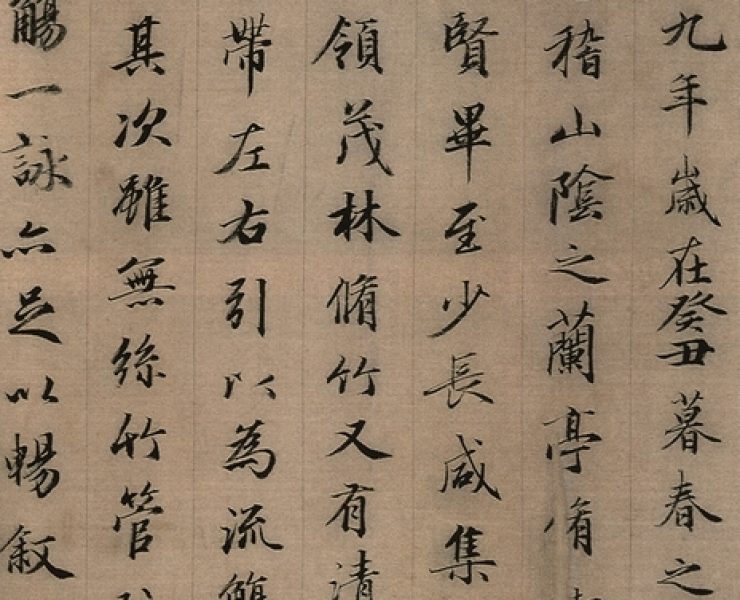 九年歲在癸丑暮春之
稽山陰之蘭亭脩
賢畢至少長咸集
領茂林脩竹又有清
帶左右引以為流觴
其次雖無絲竹管
觴一詠亦足以暢敘